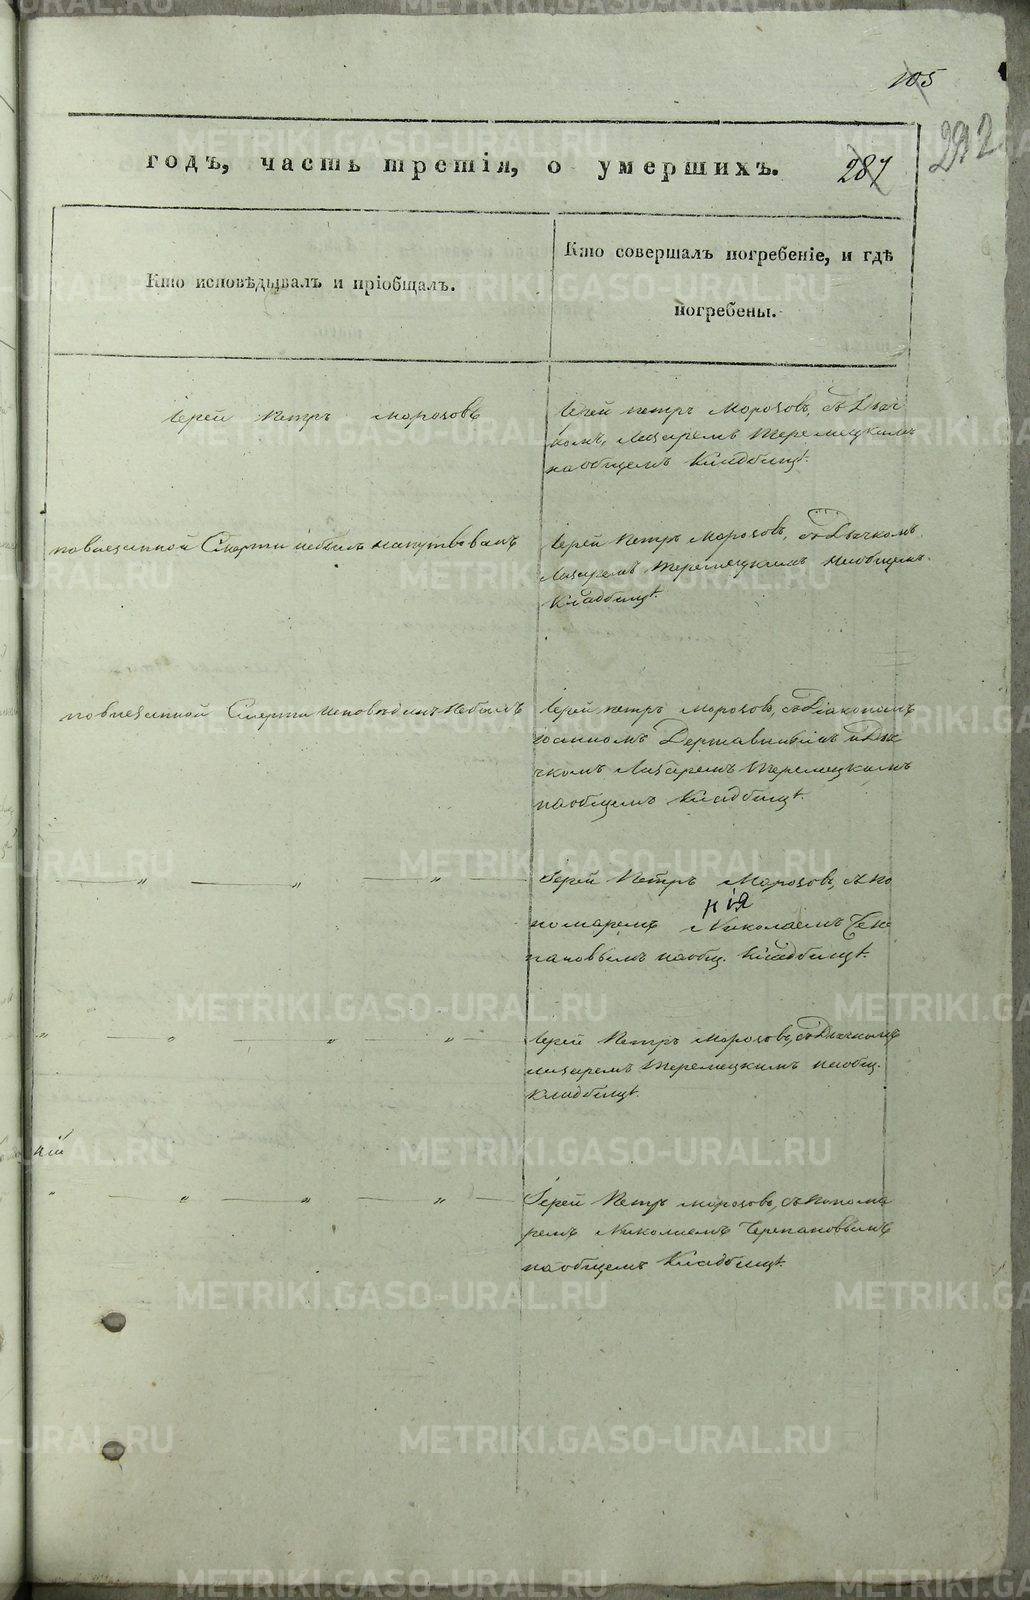 105
годъ, часть третія, о умершихъ.
287
292
Кто исповѣдывалъ и пріобщалъ.
Кто совершалъ погребеніе, и гдѣ
погребены.
Іерей Петръ Морозовъ
Іерей Петръ Морозовъ, съ Дьяч
комъ, Лазаремъ Теремецкимъ
на общемъ Кладбищѣ.
по внезапной Смерти небылъ напутвованъ
Іерей Петръ Морозовъ, съ Дьячкомъ
Лазаремъ Теремецкимъ на общемъ
Кладбищѣ.
по внезапной Смерти исповѣданъ небылъ
Іерей Петръ Морозовъ, съ Діакономъ
Іоанномъ Державинымъ и Дья
чкомъ Лазаремъ Теремецкимъ
на общемъ Кладбищѣ.
„ „ „
Іерей Петръ Морозовъ, съ по
нія
номаремъ Николаемъ Чере
пановымъ на общ. Кладбищѣ.
„ „ „ „
Іерей Петръ Морозовъ, съ Дьячкомъ
Лазаремъ Теремецкимъ на общ.
Кладбищѣ.
ній
„ „ „ „
Іерей Петръ Морозовъ, съ понома
ремъ Николаемъ Черепановымъ
на общемъ Кладбищѣ.
METRIKI.GASO-URAL.RU